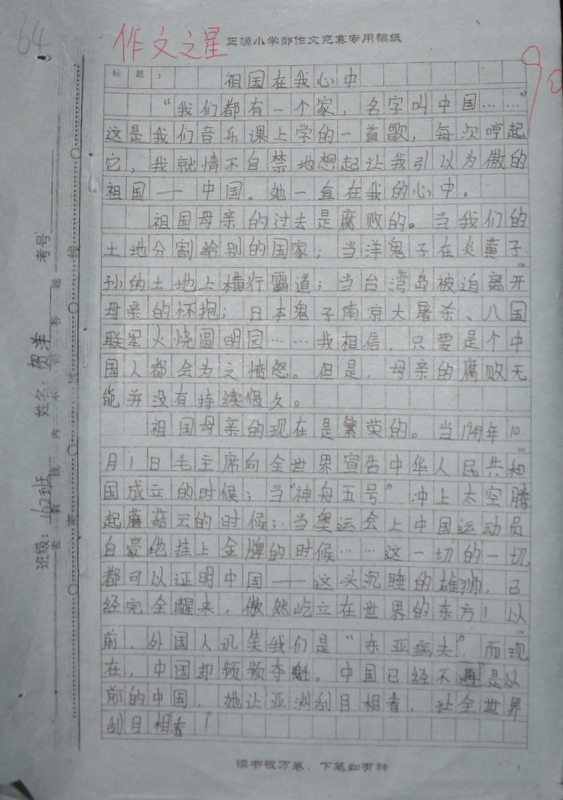 64
作文之星
正源小学部作文竞赛专用稿纸
90
标题： 祖国在我心中
“我们都有一个家，名字叫中国……”
这是我们音乐课上学的一首歌，每次哼起
它，我就情不自禁地想起让我引以为傲的
祖国——中国。她一直在我的心中。
祖国母亲的过去是腐败的。当我们的
土地分割给别的国家；当洋鬼子在炎黄子
孙的土地上横行霸道；当台湾岛被迫离开
母亲的怀抱；日本鬼子南京大屠杀、八国
联军火烧圆明园……我相信，只要是个中
国人都会为之愤怒。但是，母亲的腐败无
能并没有持续很久。
祖国母亲的现在是繁荣的。当1949年10
月1日毛主席向全世界宣告中华人民共和
国成立的时候；当“神舟五号”冲上太空腾
起蘑菇云的时候；当奥运会上中国运动员
自豪地挂上金牌的时候……这一切的一切，
都可以证明中国——这头沉睡的雄狮，已
经完全醒来，傲然屹立在世界的东方！以
前，外国人讥笑我们是“东亚病夫”而现
在，中国却频频夺魁。中国已经不再是以
前的中国，她让亚洲刮目相看，让全世界
刮目相看！
读书破万卷，下笔如有神
班级：162班
姓名：
考号